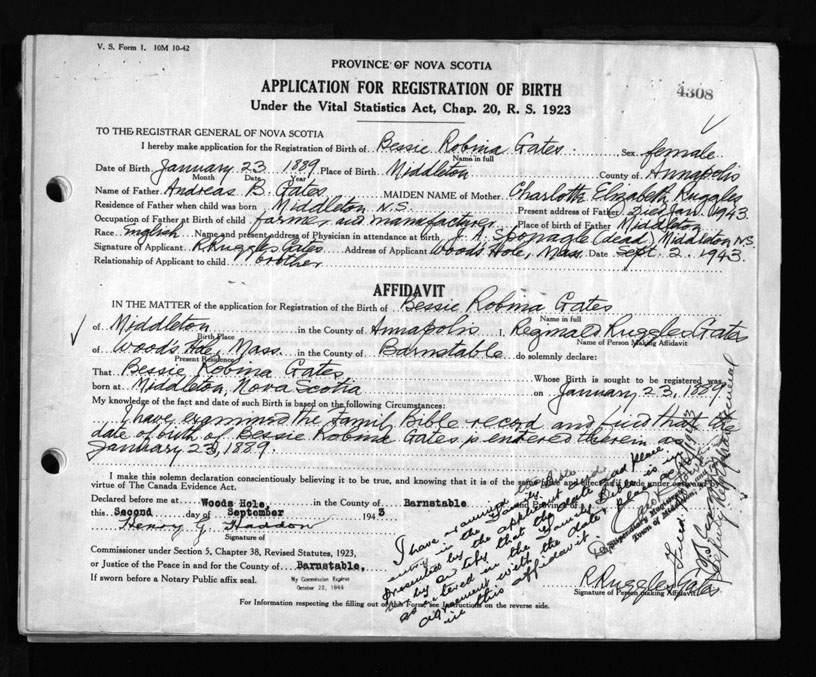 V. S. Form 1. 10M 10-42
PROVINCE OF NOVA SCOTIA
APPLICATION FOR REGISTRATION OF BIRTH
4308
Under the Vital Statistics Act, Chap. 20, R. S. 1923
TO THE REGISTRAR GENERAL OF NOVA SCOTIA
I hereby make application for the Registration of Birth of Bessie Robina Gates Sex female
Name in full
Date of Birth January 23 1889 Place of Birth Middleton County of Annapolis
Month Date Year
Name of Father Andreas B. Gates MAIDEN NAME of Mother Charlotte Elizabeth Ruggles
Residence of Father when child was born Middleton N.S. Present address of Father Died Jan. 1943.
Occupation of Father at Birth of child farmer and manufacturer Place of birth of Father Middleton
Race English Name and present address of Physician in attendance at birth J. A. Sponagle (dead) Middleton N.S.
Signature of Applicant R Ruggles Gates Address of Applicant Woods Hole, Mass. Date Sept. 2. 1943.
Relationship of Applicant to child brother
AFFIDAVIT
IN THE MATTER of the application for Registration of the Birth of Bessie Robina Gates
Name in full
of Middleton in the County of Annapolis I, Reginald Ruggles Gates
Birth Place Name of Person Making Affidavit
of Wood's Hole, Mass. in the County of Barnstable do solemnly declare:
Present Residence
That Bessie Robina Gates Whose Birth is sought to be registered was
born at Middleton, Nova Scotia on January 23, 1889
My knowledge of the fact and date of such Birth is based on the following Circumstances:
I have examined the Family Bible record and find that the
date of birth of Bessie Robina Gates is entered therein as
January 23, 1889.
I make this solemn declaration conscientiously believing it to be true, and knowing that it is of the same force and effect as if made under oath by
virtue of The Canada Evidence Act.
Declared before me at Woods Hole, in the County of Barnstable and Province of
this Second day of September 1943
Henry G. Haddon
Signature of
Commissioner under Section 5, Chapter 38, Revised Statutes, 1923,
or Justice of the Peace in and for the County of Barnstable,
If sworn before a Notary Public affix seal.
My Commission Expires
October 22, 1944
I have examined the
entry in the Family Bible
presented by the applicant and
certify that the date and place
as entered in the Family Bible is in
agreement with the date & place as
in this affidavit
Stipendiary Magistrate
Town of Middleton
R Ruggles Gates
Signature of Person making Affidavit
For Information respecting the filling out of this Form, see Instructions on the reverse side.